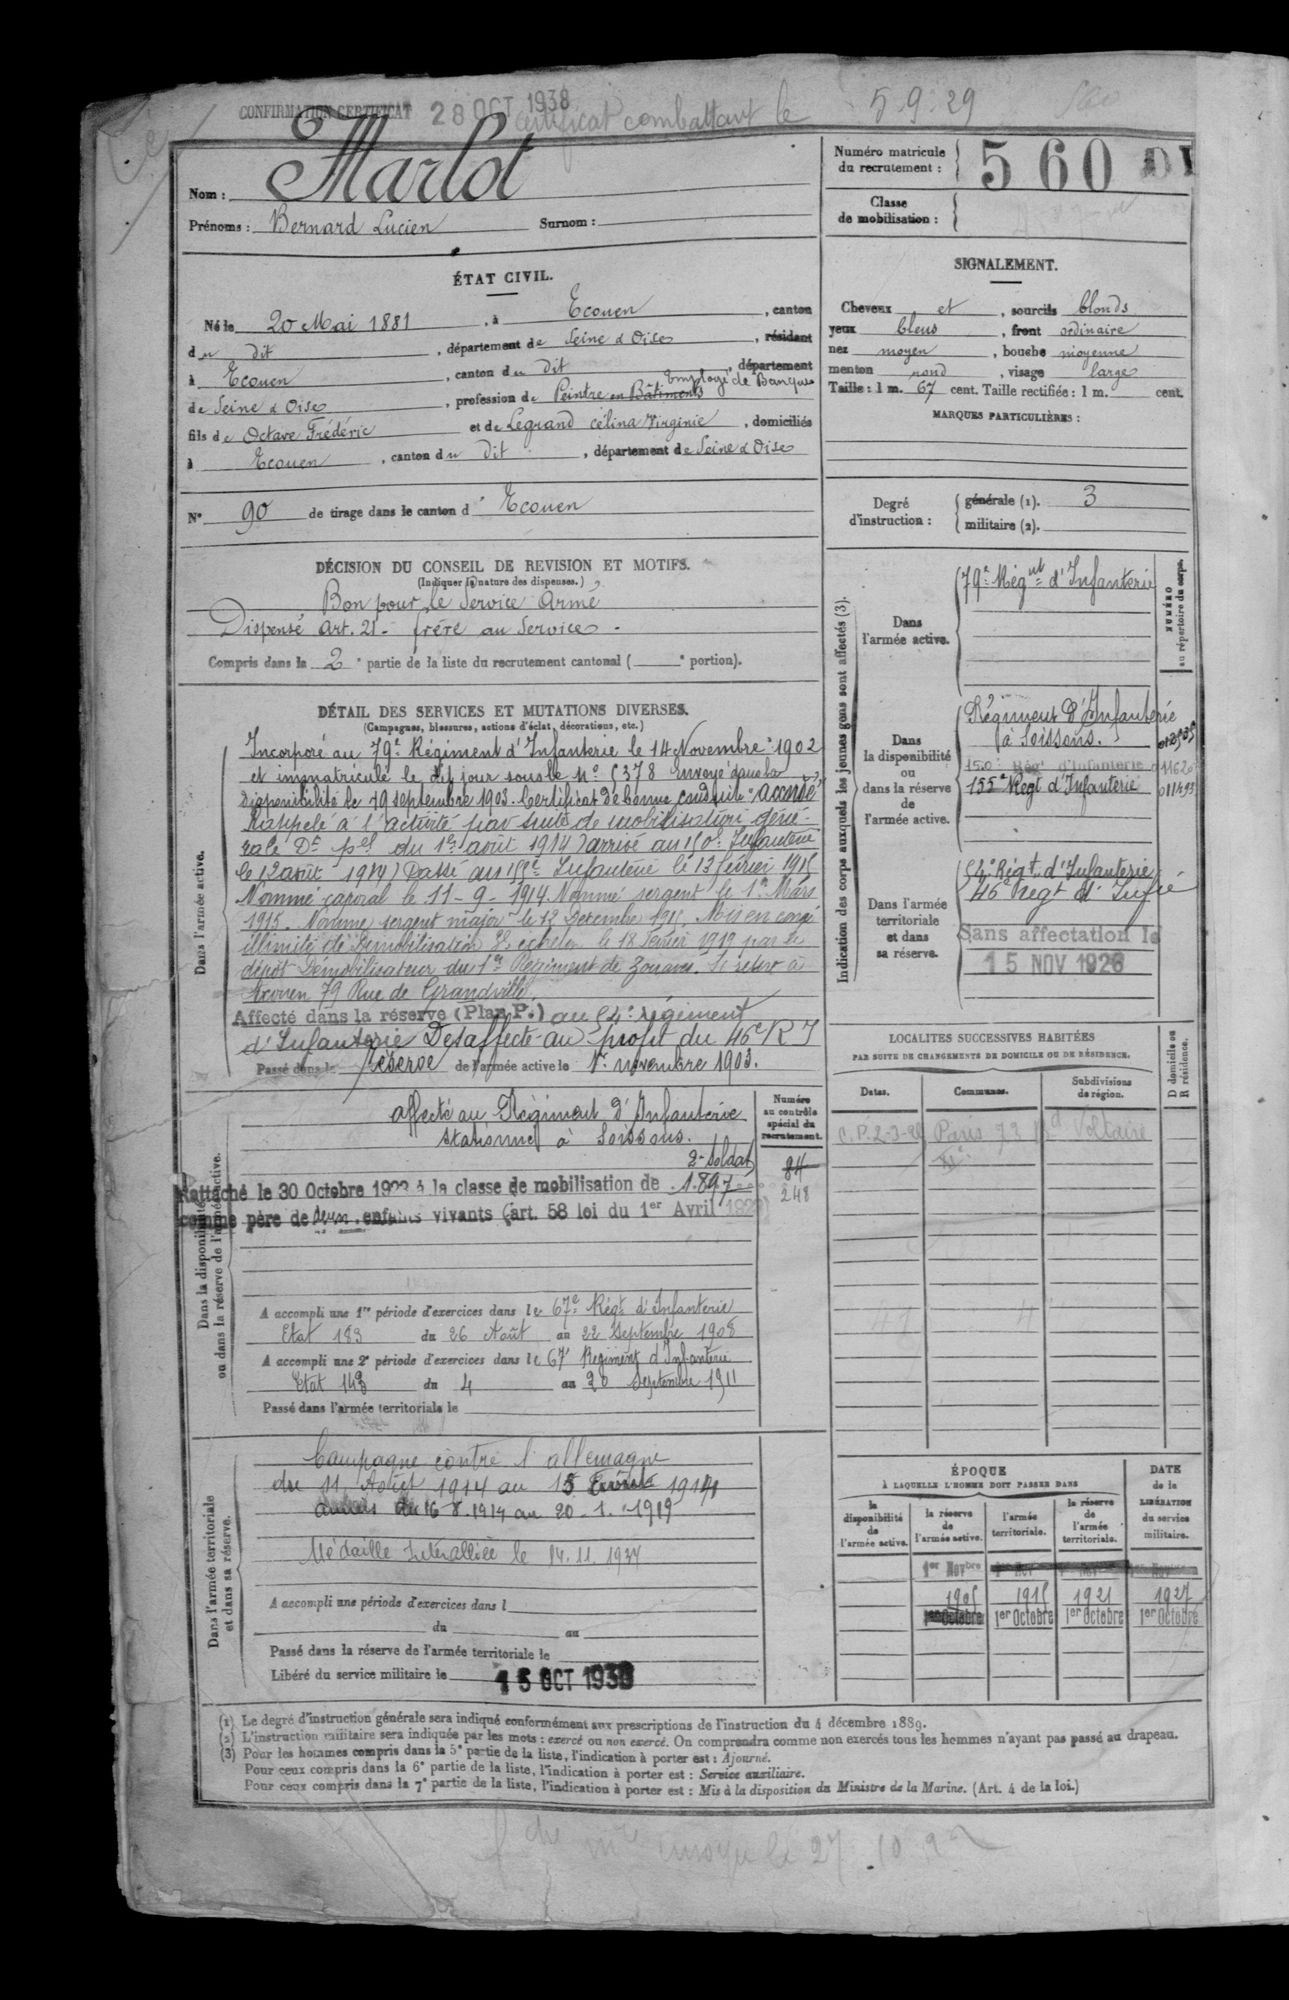 CONFIRMATION CERTIFICAT 28 OCT 1938
certificat combattant le 5.9.29
Nom : Marlot
Prénoms : Bernard Lucien Surnom :
Numéro matricule du recrutement : 560
Classe de mobilisation :
ÉTAT CIVIL.
Né le 20 Mai 1881, à Ecouen, canton
du dit, département de Seine & Oise, résidant
à Ecouen, canton du dit, département
de Seine & Oise, profession de Peintre en Bâtiments Employé de Banque
fils de Octave Frédéric et de Legrand Célina Virginie, domiciliés
à Ecouen, canton du dit, département de Seine & Oise
N° 90 de tirage dans le canton d' Ecouen
SIGNALEMENT.
Cheveux et, sourcils blonds
yeux bleus, front ordinaire
nez moyen, bouche moyenne
menton rond, visage large
Taille : 1 m. 67 cent. Taille rectifiée : 1 m. cent.
MARQUES PARTICULIÈRES :
Degré d'instruction :
générale (1). 3
militaire (2).
DÉCISION DU CONSEIL DE REVISION ET MOTIFS.
(Indiquer la nature des dispenses.)
Bon pour le Service Armé
Dispensé Art. 21 - frère au Service -
Compris dans la 2e partie de la liste du recrutement cantonal ( e portion).
DÉTAIL DES SERVICES ET MUTATIONS DIVERSES.
(Campagnes, blessures, actions d'éclat, décorations, etc.)
Dans l'armée active.
Incorporé au 79e Régiment d'Infanterie le 14 Novembre 1902
et immatriculé le dit jour sous le n° 5378 envoyé dans la
disponibilité le 19 septembre 1903. Certificat de bonne conduite "accordé"
Rappelé à l'activité par suite de mobilisation géné-
rale Dt pel du 1er août 1914 arrivé au 150e Infanterie
le 12 août 1914 Passé au 155e Infanterie le 13 février 1915
Nommé caporal le 11-9-1914 Nommé sergent le 1er Mars
1915. Nommé sergent major le 12 Décembre 1915. Mis en congé
illimité de Démobilisation 3e echelon le 18 Janvier 1919 par le
dépôt Démobilisateur du 1er Régiment de Zouaves. Se retire à
Ecouen 79 Rue de Grandville.
Affecté dans la réserve (Plan P.) au 54e régiment
d'Infanterie Désaffecté au profit du 46e R I
Passé dans la Réserve de l'armée active le 1er novembre 1903.
Indication des corps auxquels les jeunes gens sont affectés (3).
Dans l'armée active.
79e Régnt d'Infanterie
NUMÉRO au répertoire du corps.
Dans la disponibilité ou dans la réserve de l'armée active.
Régiment d'Infanterie
à Soissons.
150e Régt d'Infanterie
155e Regt d'Infanterie
Dans l'armée territoriale et dans sa réserve.
54e Régt d'Infanterie
46e Regt d'Infrie
Sans affectation le
15 NOV 1926
LOCALITES SUCCESSIVES HABITÉES
PAR SUITE DE CHANGEMENTS DE DOMICILE OU DE RÉSIDENCE.
Dates. Communes. Subdivisions de région. D domicile ou R résidence.
Paris 73 Bd Voltaire
XIe
Dans la disponibilité ou dans la réserve de l'armée active.
Numéro au contrôle spécial du recrutement.
84
248
affecté au Régiment d'Infanterie
stationné à Soissons.
2e Soldat
Rattaché le 30 Octobre 1923 à la classe de mobilisation de 1897
comme père de deux enfants vivants (art. 58 loi du 1er Avril 1923)
A accompli une 1re période d'exercices dans le 67e Régt d'Infanterie
Etat 183 du 26 Août au 22 Septembre 1908
A accompli une 2e période d'exercices dans le 67e Régiment d'Infanterie
Etat 143 du 4 au 20 Septembre 1911
Passé dans l'armée territoriale le
Dans l'armée territoriale et dans sa réserve.
Campagne contre l'allemagne
du 11 Août 1914 au 15 1914
du 16.8.1914 au 20-1-1919
Médaille Interalliée le 14.11.1937
A accompli une période d'exercices dans l
du au
Passé dans la réserve de l'armée territoriale le
Libéré du service militaire le 15 OCT 1930
ÉPOQUE
À LAQUELLE L'HOMME DOIT PASSER DANS
la disponibilité de l'armée active.
la réserve de l'armée active.
l'armée territoriale.
la réserve de l'armée territoriale.
DATE de la LIBÉRATION du service militaire.
1er Novbre
1905 1915 1921 1927
1er Octobre 1er Octobre 1er Octobre 1er Octobre
(1) Le degré d'instruction générale sera indiqué conformément aux prescriptions de l'instruction du 4 décembre 1889.
(2) L'instruction militaire sera indiquée par les mots : exercé ou non exercé. On comprendra comme non exercés tous les hommes n'ayant pas passé au drapeau.
(3) Pour les hommes compris dans la 5e partie de la liste, l'indication à porter est : Ajourné.
Pour ceux compris dans la 6e partie de la liste, l'indication à porter est : Service auxiliaire.
Pour ceux compris dans la 7e partie de la liste, l'indication à porter est : Mis à la disposition du Ministre de la Marine. (Art. 4 de la loi.)